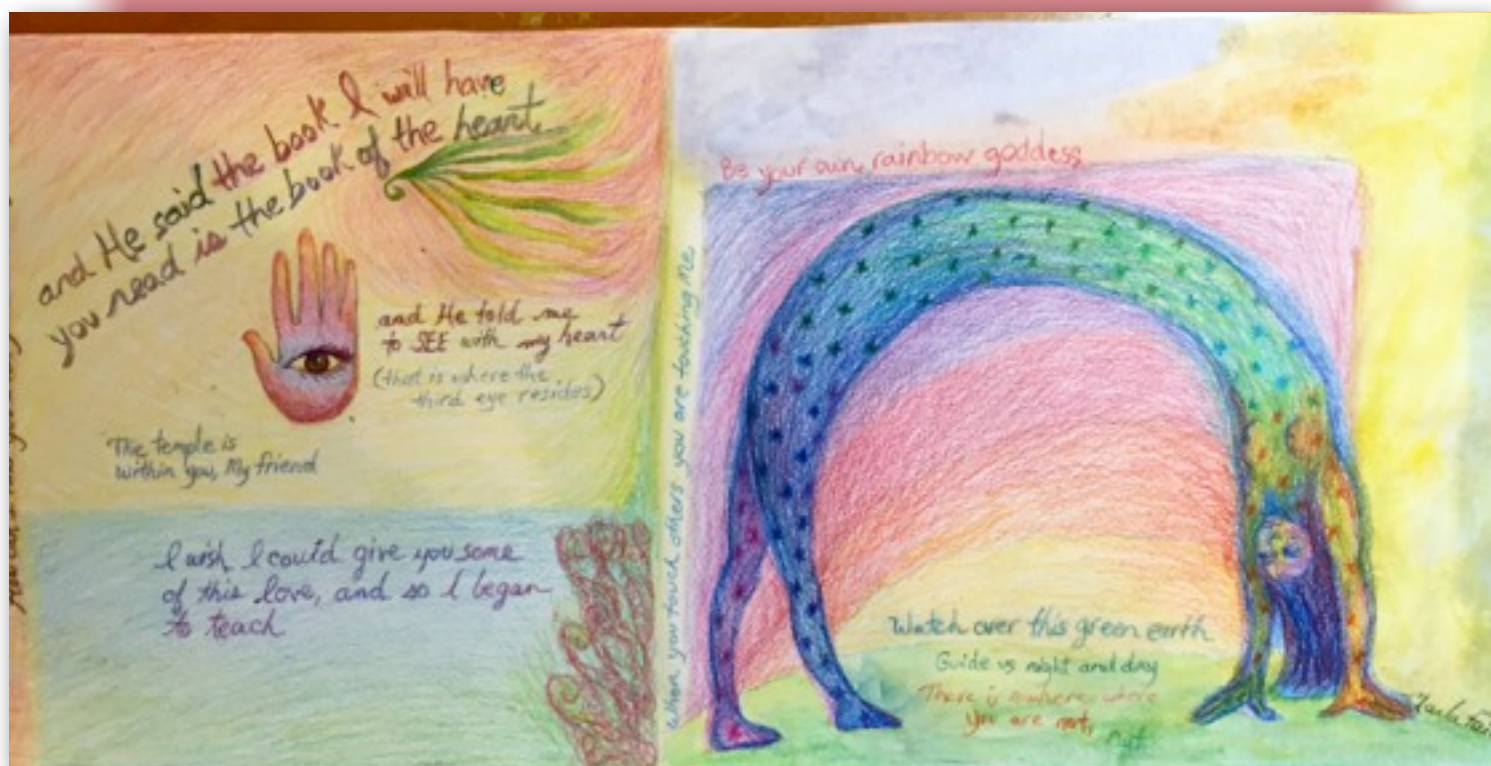 and He said the book I will have
you read is the book of the heart
and He told me
to SEE with my heart
(that is where the
third eye resides)
The temple is
within you, My friend
I wish I could give you some
of this love, and so I began
to teach
When you touch others you are touching Me
Be your own, rainbow goddess
Watch over this green earth
Guide us night and day
There is nowhere, where
you are not,